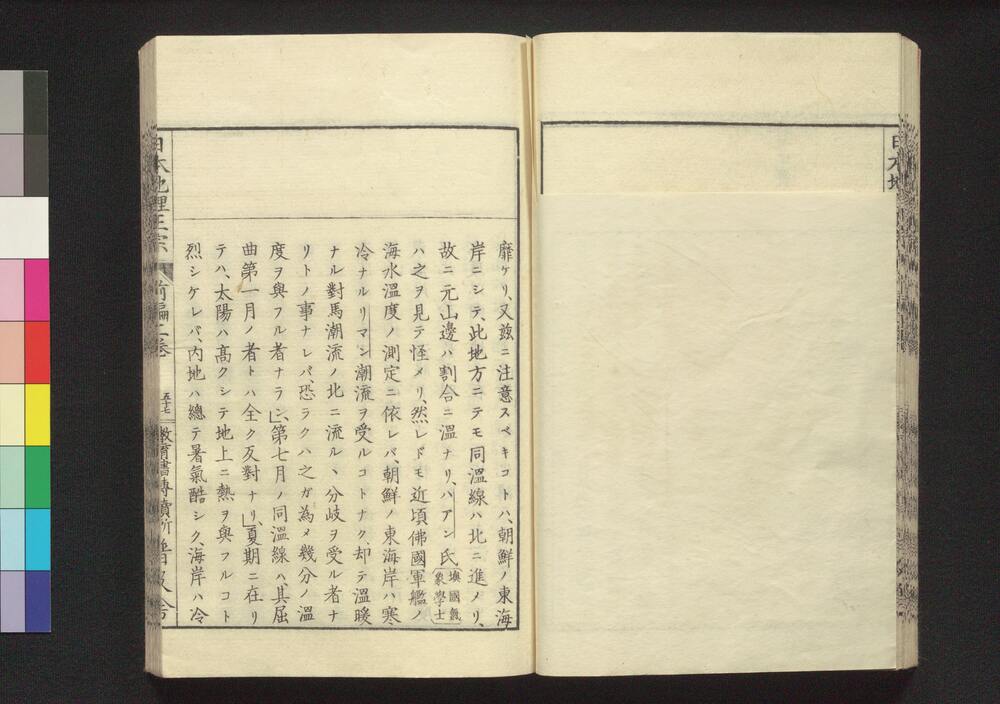 日本地
靡ケリ、又玆ニ注意スベキコトハ、朝鮮ノ東海
岸ニシテ、此地方ニテモ同溫線ハ北ニ進メリ、
故ニ元山邊ハ割合ニ溫ナリ、ハアン氏〔墺國氣象學士〕
ハ之ヲ見テ怪メリ、然レドモ近頃佛國軍艦ノ
海水溫度ノ測定ニ依レバ、朝鮮ノ東海岸ハ寒
冷ナルリマン潮流ヲ受ルコトナク、却テ溫暖
ナル對馬潮流ノ北ニ流ルヽ分岐ヲ受ル者ナ
リトノ事ナレバ、恐ラクハ之ガ為メ幾分ノ溫
度ヲ與フル者ナラン」、第七月ノ同溫線ハ、其屈
曲第一月ノ者トハ全ク反對ナリ」、夏期ニ在リ
テハ、太陽ハ高クシテ地上ニ熱ヲ與フルコト
烈シケレバ、內地ハ總テ暑氣酷シク、海岸ハ冷
日本地理正宗 前編二卷 五十七 敎育書專賣所普及舍